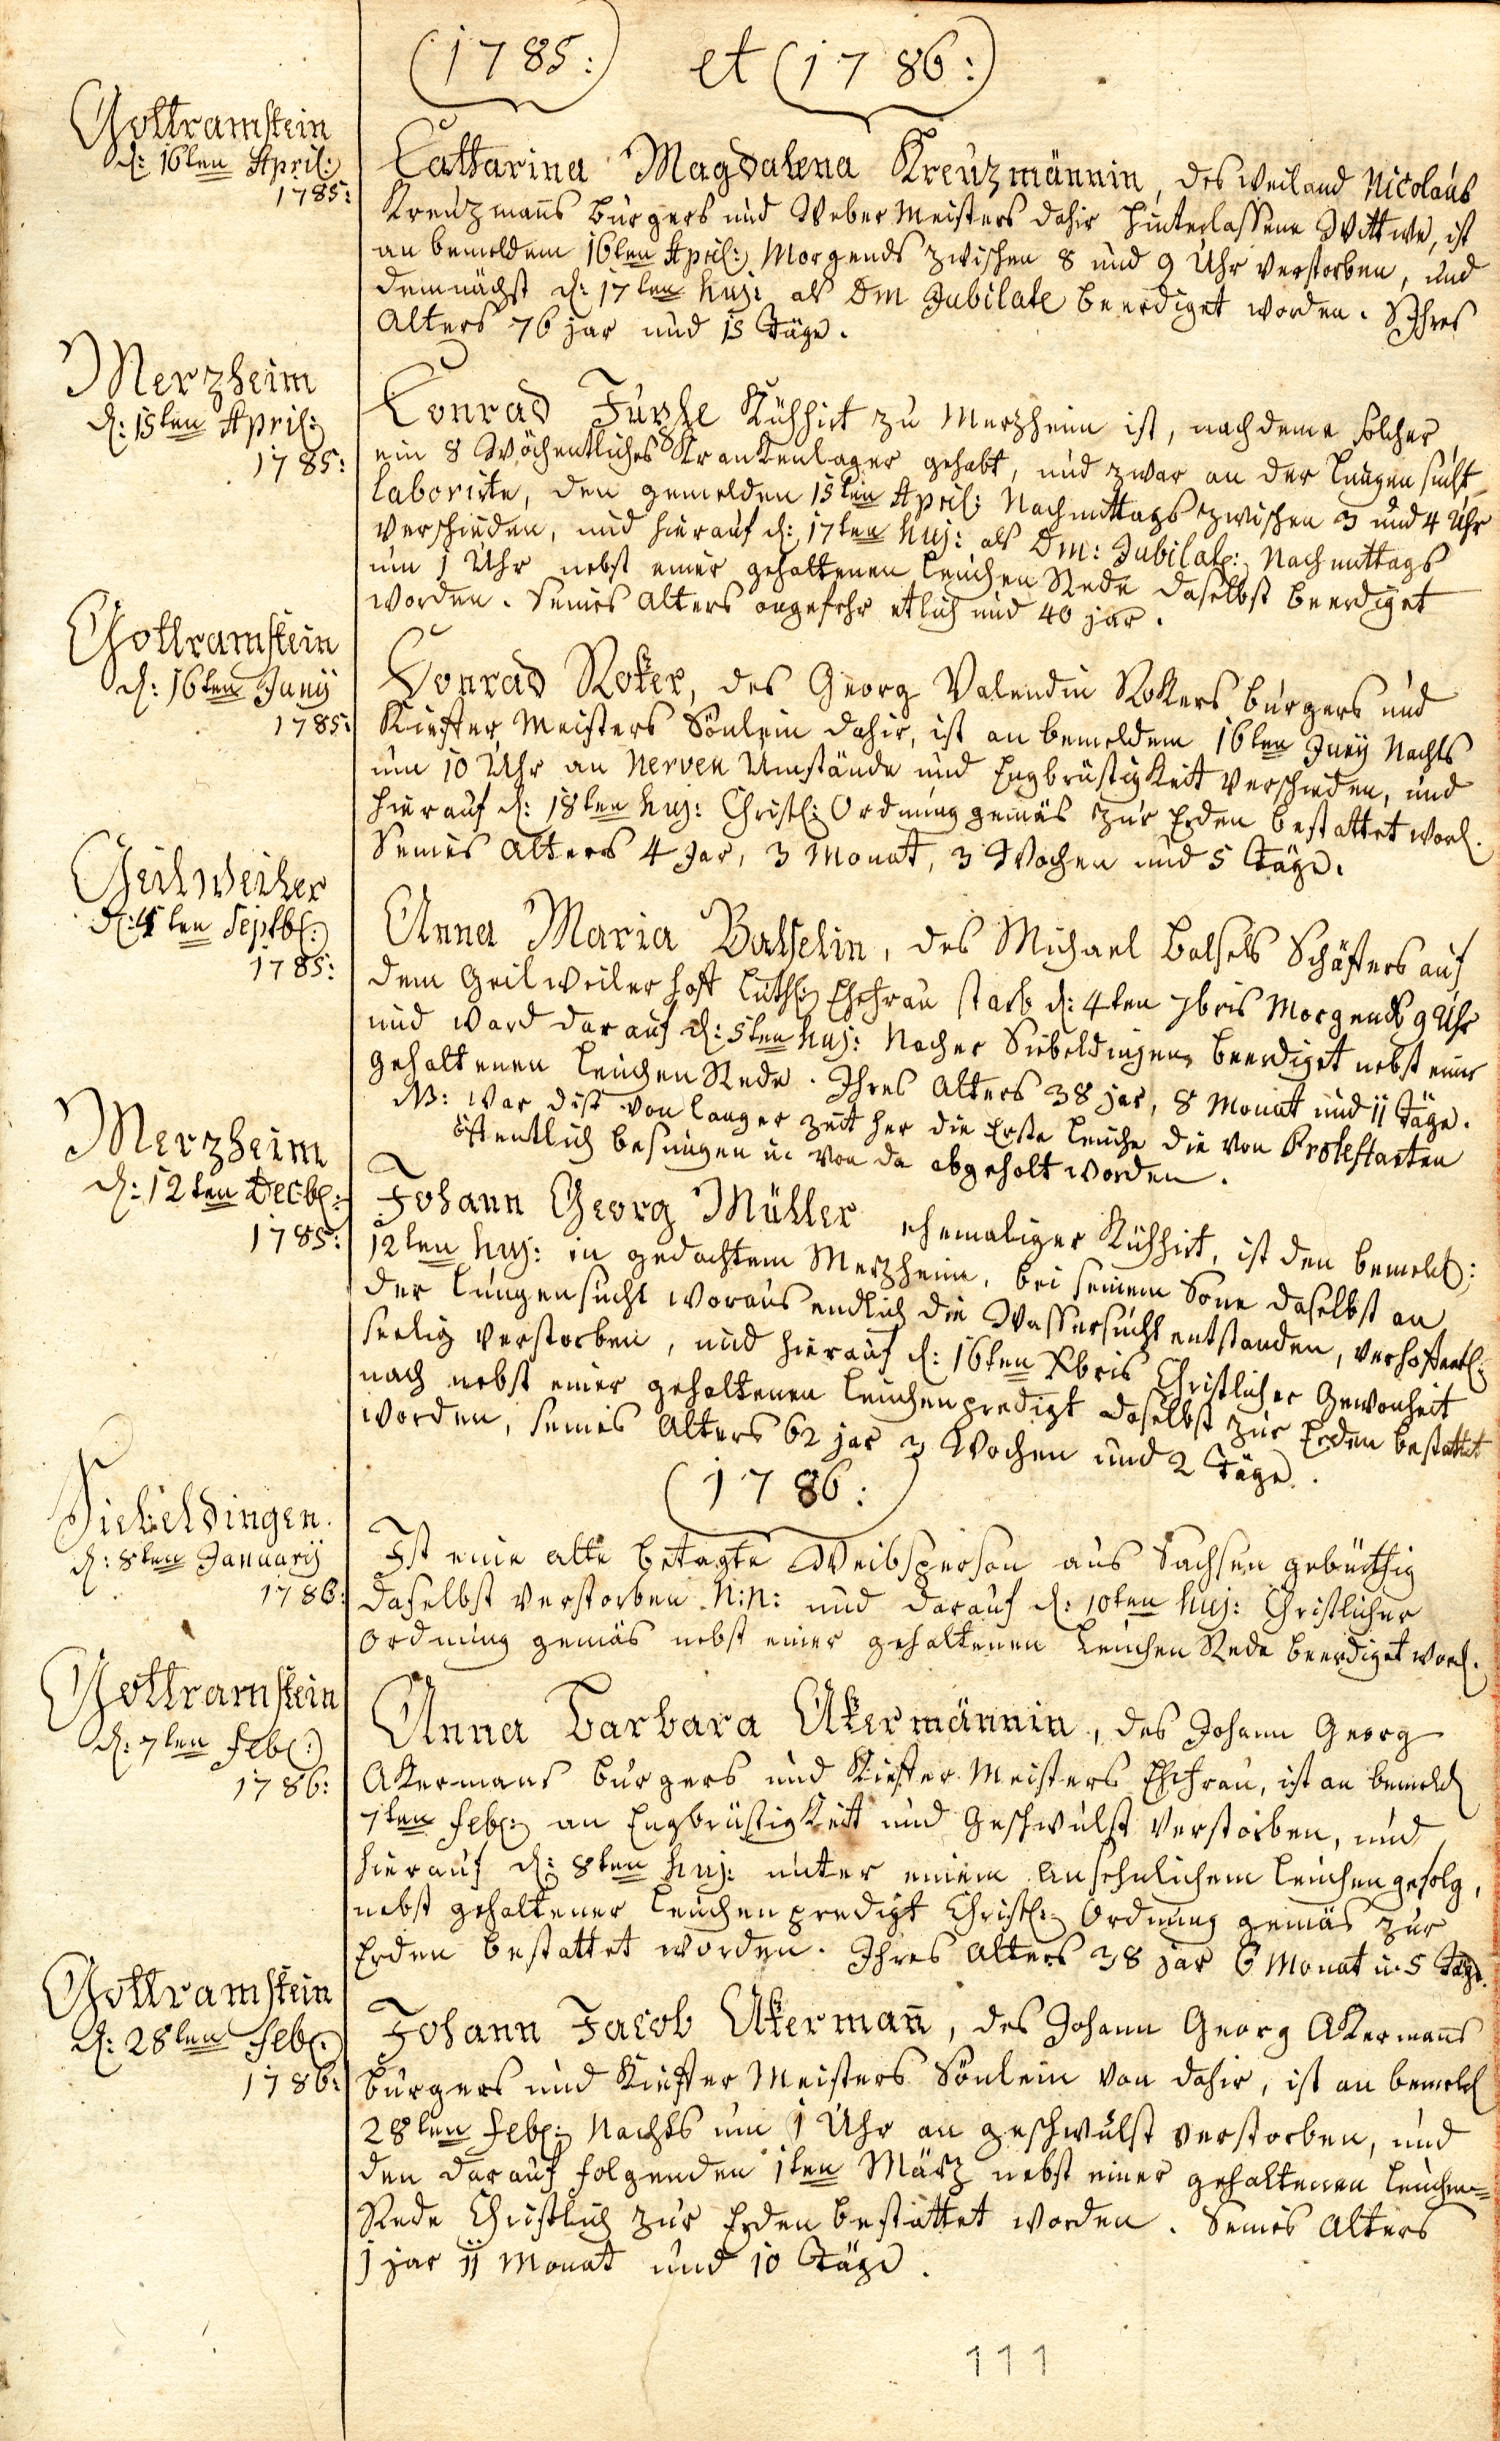 (1785:) et (1786:)
Gottramstein
d: 16ten April:
1785:
Catharina Magdalena Kreuzmännin, des weiland Nicolaus
Kreuzmañs burgers und Weber Meisters dahir hinterlassene Wittwe, ist
an bemeldem 16ten April: Morgends zwischen 8 und 9 Uhr verstorben, und
demnächst d: 17ten huj: als Dm Jubilate beerdiget worden. Ihres
Alters 76 jar und 15 Täge.
Merzheim
d: 15ten April:
1785:
Conrad Kühhirt zu Merzheim ist, nachdeme solcher
ein 8 Wöchentliches Krankenlager gehabt, und zwar an der Lungensucht
laborirte, den gemelden 15ten April: Nachmittags zwischen 3 und 4 Uhr
verschieden, und hierauf d: 17ten huj: als Dm: Jubilat: Nachmittags
um 1 Uhr nebst einer gehaltenen Leichen Rede daselbst beerdiget
worden. Seines Alters ongefehr etlich und 40 jar.
Gottramstein
d: 16ten Junÿ
1785:
Conrad Roker, des Georg Valendin Rokers burgers und
Kieffer Meisters Sönlein dahir, ist an bemeldem 16ten Junÿ Nachts
um 10 Uhr an Nerven Umstände und Engbrüstigkeit verschieden, und
hierauf d: 18ten huj: Christl: Ordnung gemäs zur Erden bestattet word.
Seines Alters 4 Jar, 3 Monat, 3 Wochen und 5 Täge.
Geilweiler
d: 4ten Septb:
1785:
Anna Maria Balselin, des Michael Balsels Schäffers auf
dem Geilweiler hoff luth: Ehefrau starb d: 4ten 7bris Morgends 9 Uhr
und ward darauf d: 5ten huj: Nacher Siebeldingen beerdiget nebst einer
gehaltenen Leichen Rede. Ihres Alters 38 jar, 8 Monat und 11 Täge.
NB: War dist von langer zeit her die Erste Leiche die von Protestanten
öffentlich besungen u. von da abgeholt worden.
Merzheim
d: 12ten Decb:
1785:
Johann Georg Müller ehemaliger Kühhirt, ist den bemeld:
12ten huj: in gedachtem Merzheim, bei seinem Sone daselbst an
der Lungensucht woraus endlich die Wassersucht entstanden, verhoffentl:
seelig verstorben, und hierauf d: 16ten Xbris Christlicher Gewonheit
nach nebst einer gehaltenen Leichenpredigt daselbst zur Erden bestattet
worden, seines Alters 62 jar 3 Wochen und 2 Täge.
(1786:)
Siebeldingen.
d: 8ten Januarÿ
1786:
Ist eine alte betagte Weibsperson aus Sachsen gebürthig
daselbst verstorben N:N: und darauf d: 10ten huj: Christlicher
Ordnung gemäs nebst einer gehaltenen Leichen Rede beerdiget word.
Gottramstein
d: 7ten Feb:
1786:
Anna Barbara Akermännin, des Johann Georg
Akermans burgers und Kieffer Meisters Ehefrau, ist an bemeld
7ten Feb: an Engbrüstigkeit und Geschwulst verstorben, und
hierauf d: 8ten huj: unter einem ansehnlichem Leichengefolg,
nebst gehaltener Leichenpredigt Christl: Ordnung gemäs zur
Erden bestattet worden. Ihres Alters 38 jar 6 Monat u. 5 Täge.
Gottramstein
d: 28ten Feb:
1786:
Johann Jacob Akermañ, des Johann Georg Akermañs
burgers und Kieffer Meisters Sönlein von dahir, ist an bemeld
28ten Feb: Nachts um 1 Uhr an geschwulst verstorben, und
den darauf folgenden 1ten März nebst einer gehaltenen Leichen=
Rede Christlich zur Erden bestattet worden. Seines Alters
1 jar 11 Monat und 10 Täge.
111